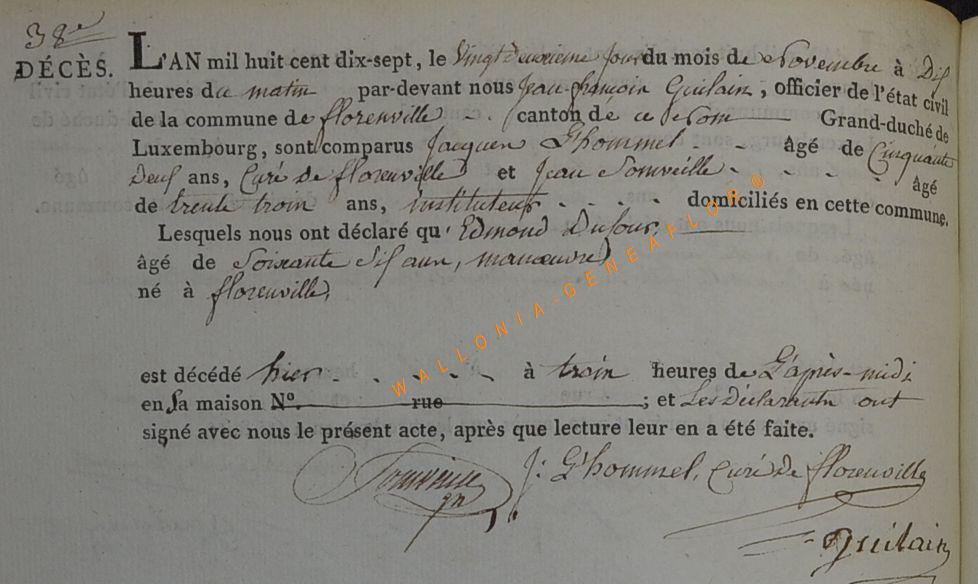 38e
DÉCÈS.
L'AN mil huit cent dix-sept, le Vingt deuxieme jour du mois de Novembre à Dix
heures du matin par-devant nous Jean françois Guilain, officier de l'état civil
de la commune de florenville - . canton de ce Nom Grand-duché de
Luxembourg, sont comparus Jacques G'hommel - - âgé de Cinquante
Deux ans, Curé de florenville et Jean Somveille - - - - - âgé
de trente trois ans, instituteur - - - - domiciliés en cette commune.
Lesquels nous ont déclaré qu' Edmond Dufour,
âgé de Soixante Six ans, manœuvre
né à florenville,
est décédé hier - - - - - à trois heures de L'après-midi
en sa maison N°. rue ; et Les Déclarants ont
signé avec nous le présent acte, après que lecture leur en a été faite.
Somveille J: G'hommel, Curé de florenville
Guilain
WALLONIA-GENEAFLOR®